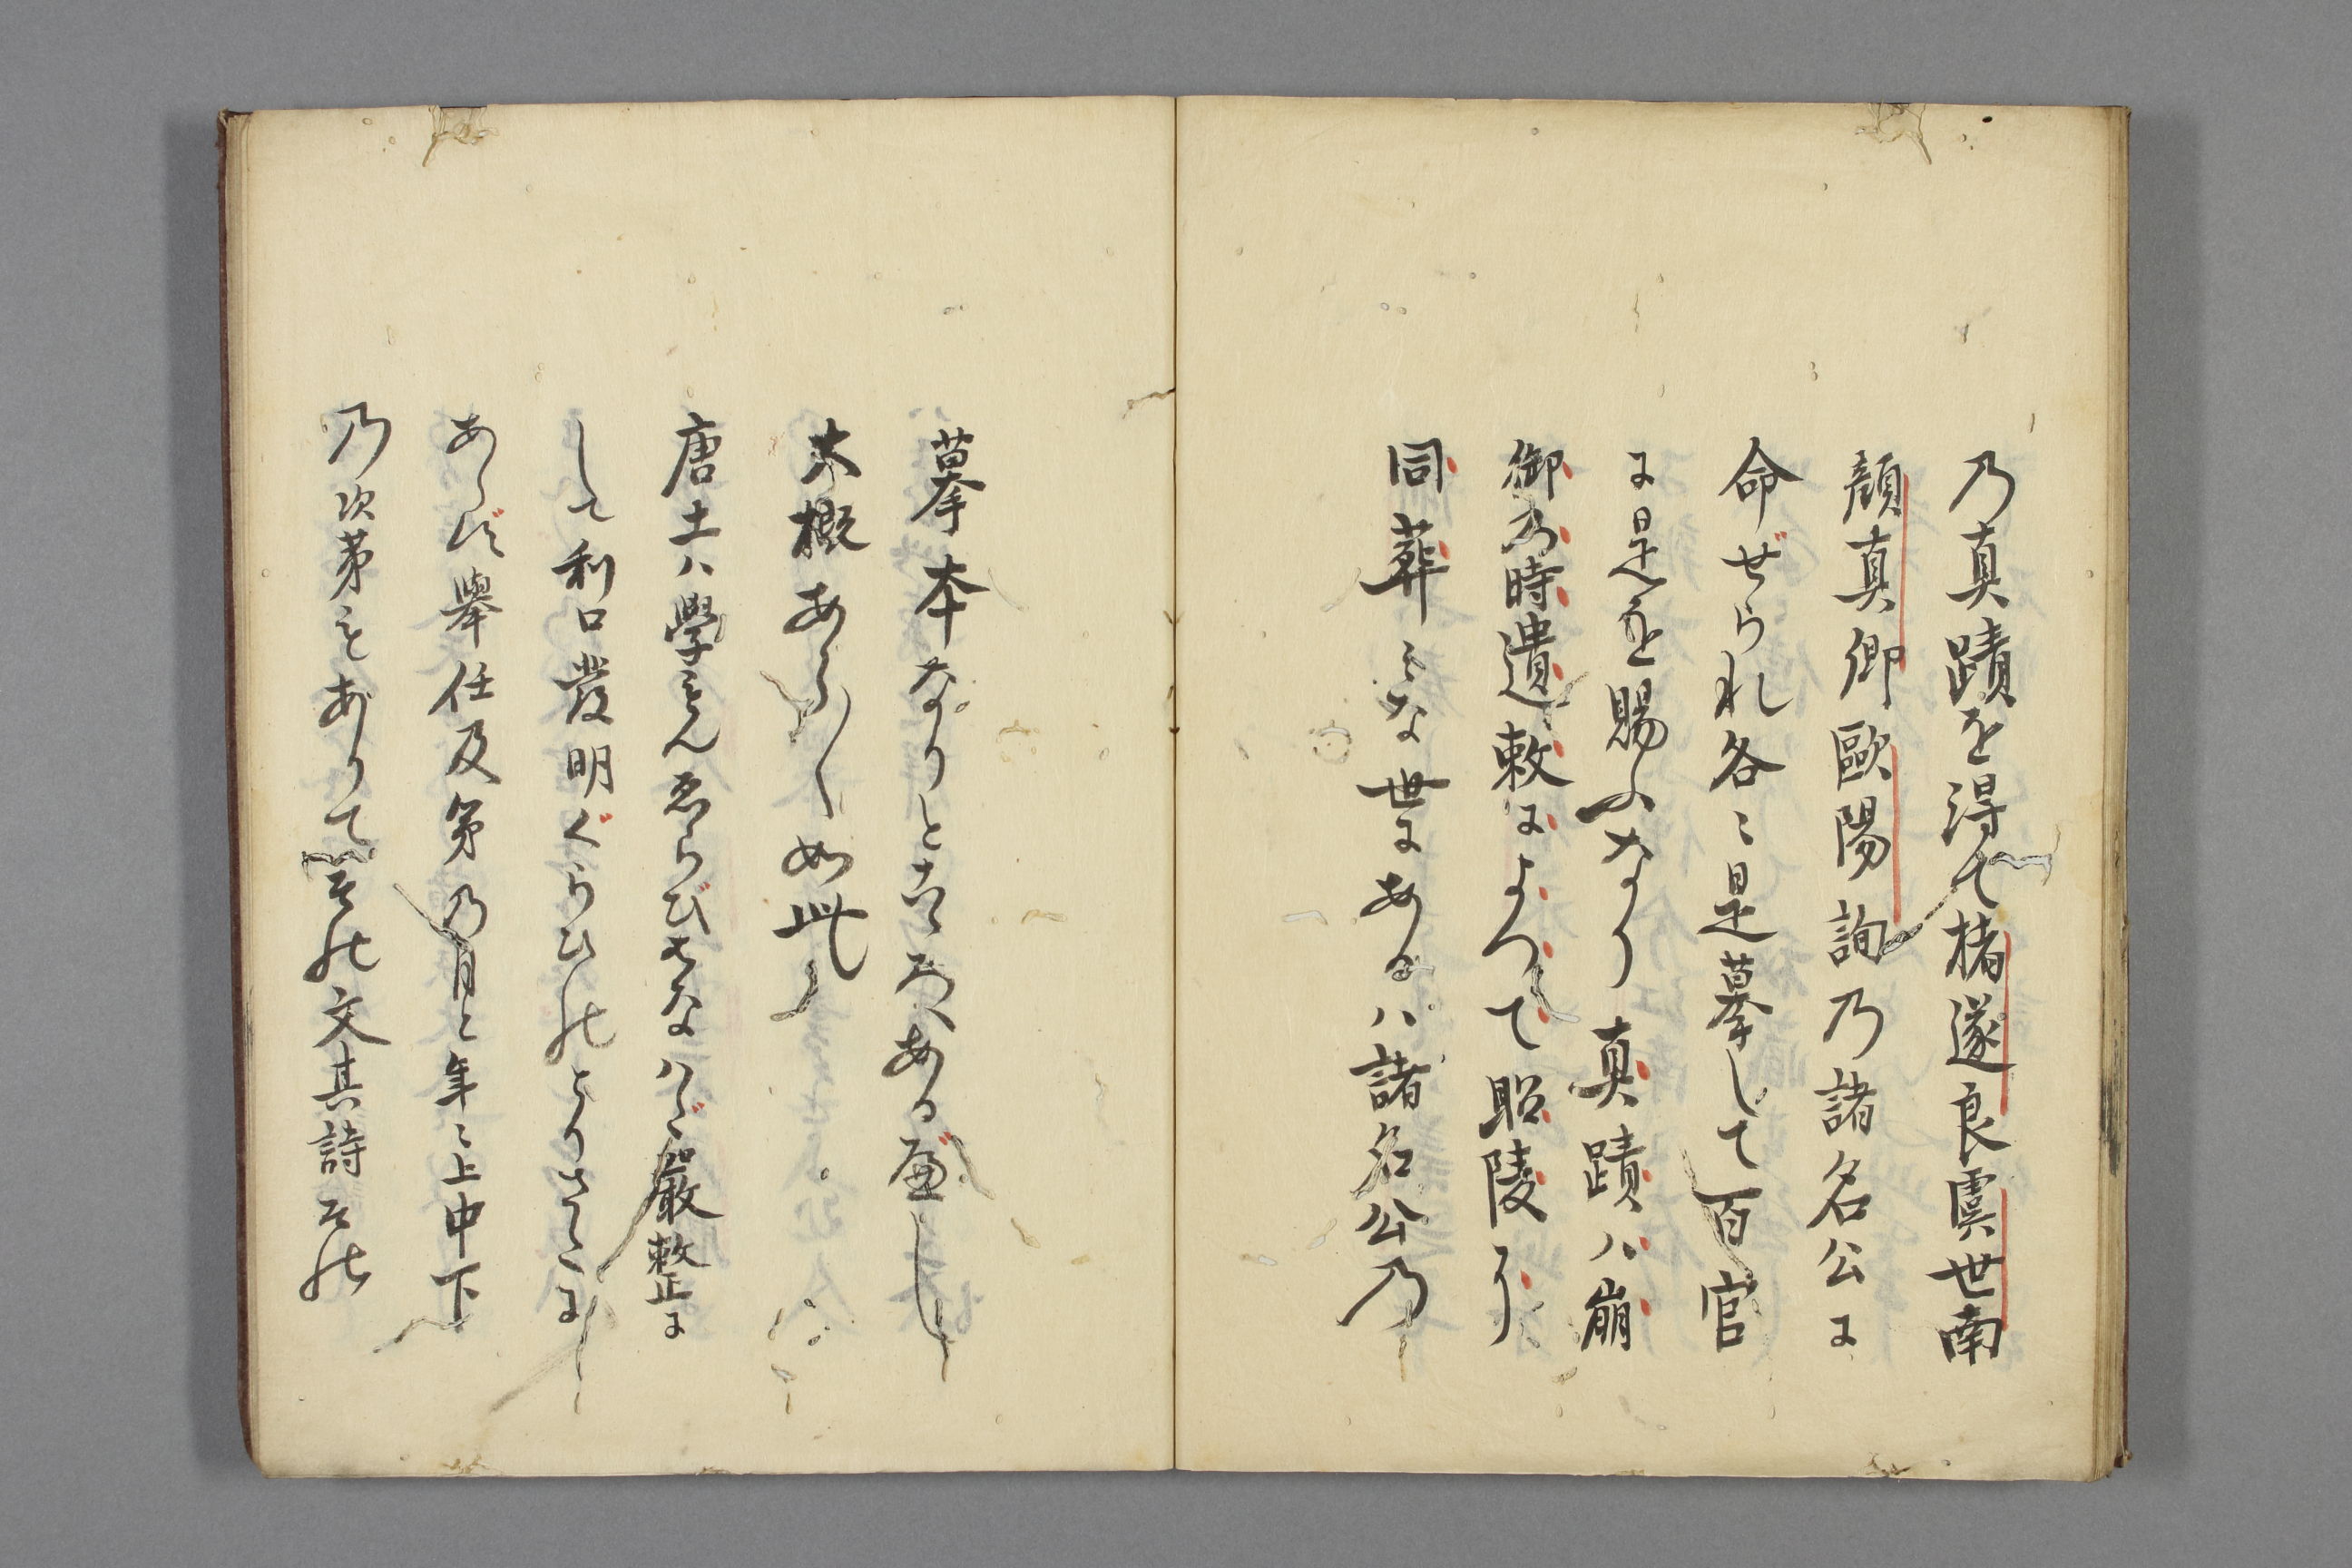 乃真蹟を得て楮遂良虞世南
顔真卿歐陽詢乃諸名公に
命ぜられ各〻是摹して百官
に是を賜ふなり真蹟ハ崩
御乃時遺敕によつて昭陵に
同葬みな世にあるハ諸名公乃
摹本なりと云へあるべし
大概あら〳〵如此
唐土ハ學もんゑらびなハ嚴整に
して利口發明ぐらひのとりさたに
あらず舉任及第乃月と年〻上中下
乃次第もありてその文其詩その